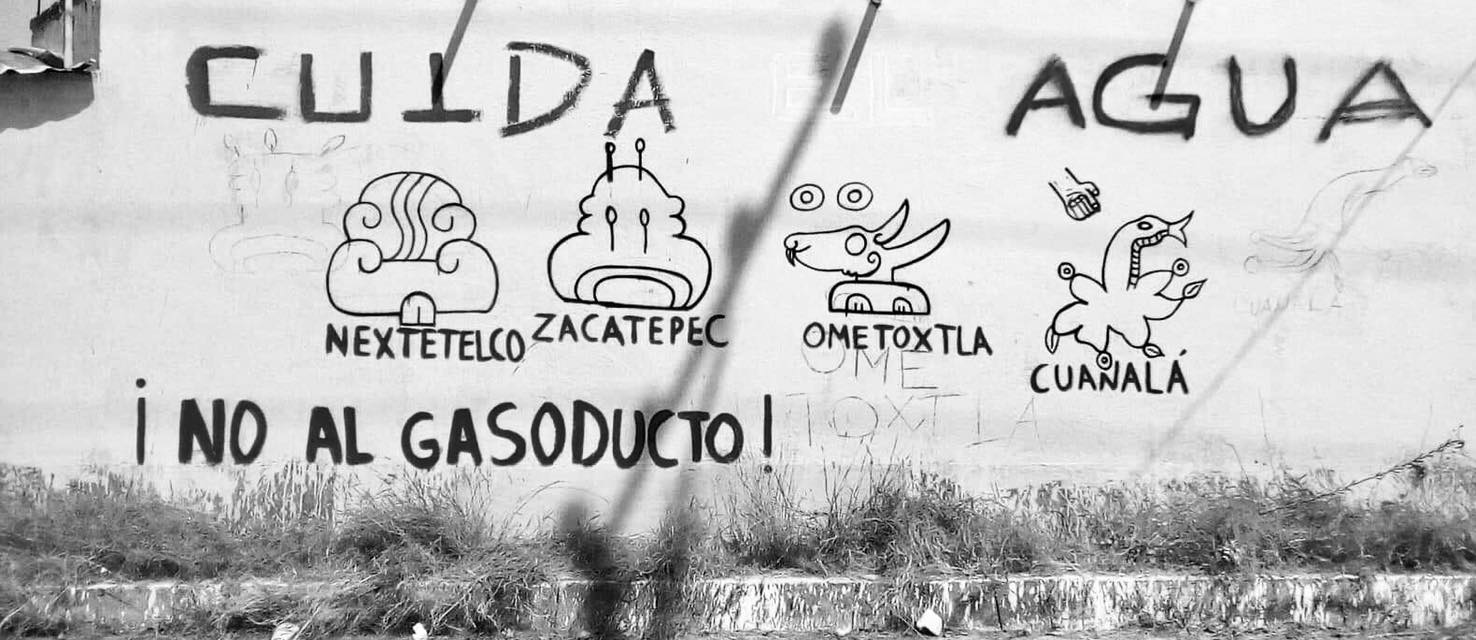 CUIDA EL AGUA
NEXTETELCO ZACATEPEC OMETOXTLA CUANALÁ
OME
TOXTLA
CUANALA
¡NO AL GASODUCTO!